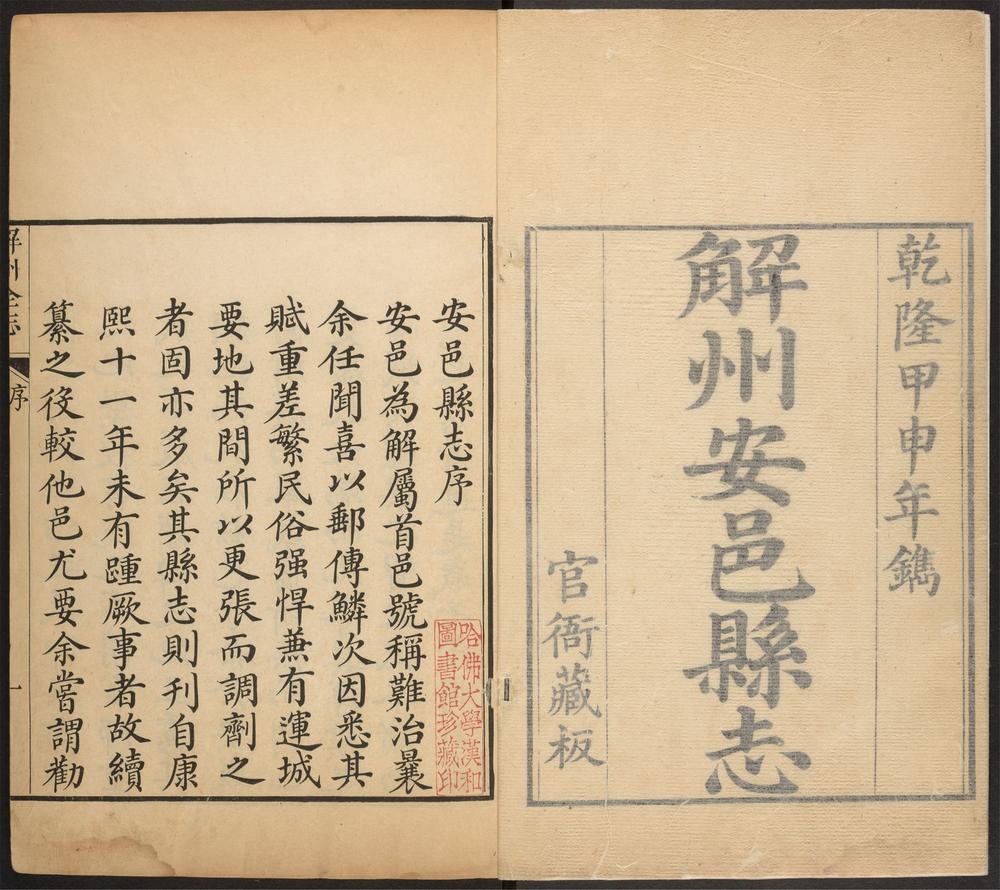 乾隆甲申年鐫
解州安邑縣志
官衙藏板
安邑縣志序
安邑為解屬首邑號稱難治曩
余任聞喜以郵傳鱗次因悉其
賦重差繁民俗强悍蒹有運城
要地其間所以更張而調劑之
者固亦多矣其縣志則刊自康
熙十一年未有踵厥事者故續
纂之役較他邑尤要余嘗謂勸
解州全志
序
一
哈佛大學漢和
圖書館珍藏印